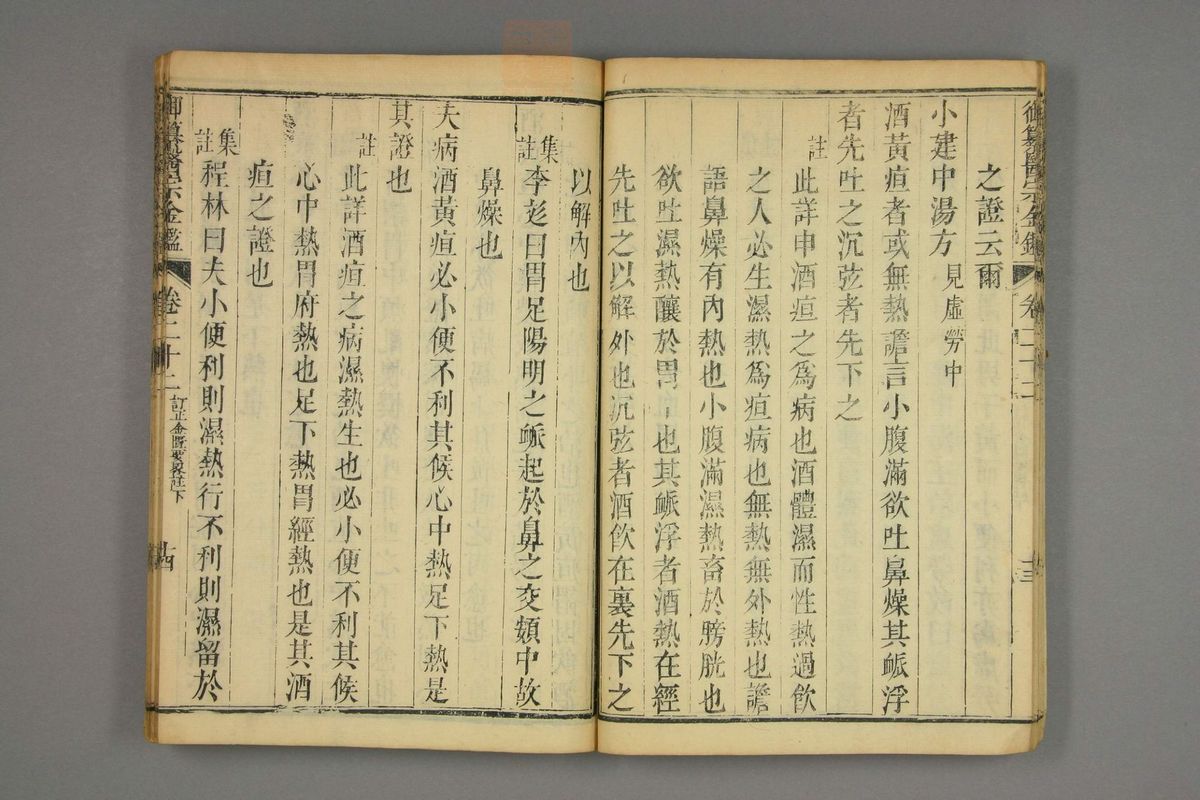 御纂醫宗金鑑 卷二十二 十三
之證云爾
小建中湯方 見虛勞中
酒黃疸者或無熱譫言小腹滿欲吐鼻燥其脈浮
者先吐之沉弦者先下之
註
此詳申酒疸之為病也酒體濕而性熱過飲
之人必生濕熱爲疸病也無熱無外熱也譫
語鼻燥有內熱也小腹滿濕熱畜於膀胱也
欲吐濕熱釀於胃中也其脈浮者酒熱在經
先吐之以解外也沉弦者酒飲在裏先下之
以解內也
集註 李彣曰胃足陽明之脈起於鼻之交頞中故
鼻燥也
夫病酒黃疸必小便不利其候心中熱足下熱是
其證也
註
此詳酒疸之病濕熱生也必小便不利其候
心中熱胃府熱也足下熱胃經熱也是其酒
疸之證也
集註 程林曰夫小便利則濕熱行不利則濕留於
御纂醫宗金鑑 卷二十二 訂正金匱要畧註下 十四